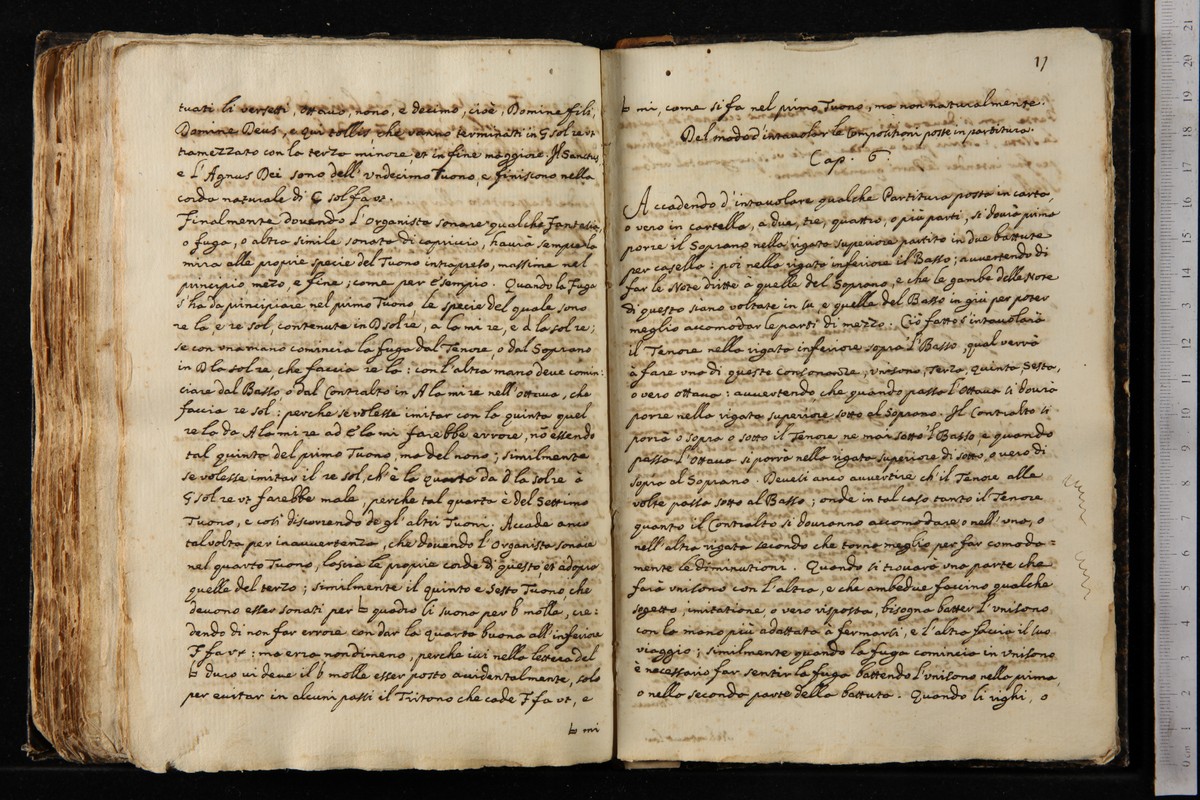 tuati li versetti ottavo, nono, e decimo, cioè, Domine fili,
Domine Deus, e Qui tollis che vanno terminati in G sol re ut
tramezzato con la terza minore, et in fine maggiore. Il Sanctus
e l'Agnus Dei sono dell'undecimo Tuono, e finiscono nella
corda naturale di C sol fa ut.
Finalmente dovendo l'Organista sonare qualche Fantasia,
o fuga, o altra simile sonata di capricio, haurà sempre la
mira alle proprie specie del Tuono intrapreso, massime nel
principio, mezo, e fine; come per esempio. Quando la Fuga
s'ha da principiare nel primo Tuono, le specie del quale sono
re la e re sol, contenute in D sol re, a la mi re, e d la sol re;
se con una mano comincia la fuga dal Tenore, o dal Soprano
in D la sol re, che faccia re la: con l'altra mano deve comin:
ciare dal Basso o dal Contralto in A la mi re nell'ottava, che
faccia re sol: perche se volesse imitar con la quinta quel
re la da A la mi re ad E la mi farebbe errore, nō essendo
tal quinta del primo Tuono, ma del nono; similmente
se volesse imitar il re sol, ch'è la quarta da D la sol re à
G sol re ut farebbe male, perche tal quarta è del Settimo
Tuono, e così discorrendo de gl'altri Tuoni. Accade anco
tal volta per inavvertenza, che dovendo l'Organista sonare
nel quarto Tuono, lascia le proprie corde di questo, et adopra
quelle del terzo; similmente il quinto e Sesto Tuono che
devono esser sonati per ♮ quadro li suona per b molle, cre:
dendo di non far errore con dar la quarta buona all'inferiore
F fa ut: ma erra nondimeno, perche ivi nella lettera del
♮ duro vi deve il b molle esser posto accidentalmente, solo
per evitar in alcuni passi il Tritono che cade F fa ut, e
♮ mi
17
♮ mi, come si fa nel primo Tuono, ma non naturalmente.
Del modo d'intavolar le Compositioni poste in partitura.
Cap. 6.
Accadendo d'intavolare qualche Partitura posta in carta,
o vero in cartella, a due, tre, quattro, o più parti, si dourà prima
porre il Soprano nella rigata superiore partito in due battute
per casella: poi nella rigata inferiore il Basso; avvertendo di
far le Note dritte a quelle del Soprano, e che le gambe delle Note
di questo siano voltate in su, e quelle del Basso in giù per poter
meglio accomodar le parti di mezzo. Ciò fatto s'intavolarà
il Tenore nella rigata inferiore sopra 'l Basso, qual verrà
à fare una di queste consonanze, unisono, Terza, quinta, Sesta,
o vero ottava: avvertendo che quando passa l'Ottava si dourà
porre nella rigata superiore sotto al Soprano. Il Contralto si
porrà o sopra o sotto il Tenore ne mai sotto 'l Basso, e quando
passa l'Ottava si porrà nella rigata superiore di sotto, o vero di
sopra al Soprano. Devesi anco avvertire ch'il Tenore alle
volte passa sotto al Basso; onde in tal caso tanto il Tenore
quanto il Contralto si douranno accomodare o nell'una, o
nell'altra rigata secondo che torna meglio per far comoda=
mente le diminutioni. Quando si trovarà una parte che
farà unisono con l'altra, e che ambedue faccino qualche
sogetto, imitatione, o vero risposta, bisogna batter l'unisono
con la mano più adattata à fermarsi, e l'altra faccia il suo
viaggio; similmente quando la fuga comincia in unisono
è necessario far sentir la fuga battendo l'unisono nella prima,
o nella seconda parte della battuta. Quando li righi, o